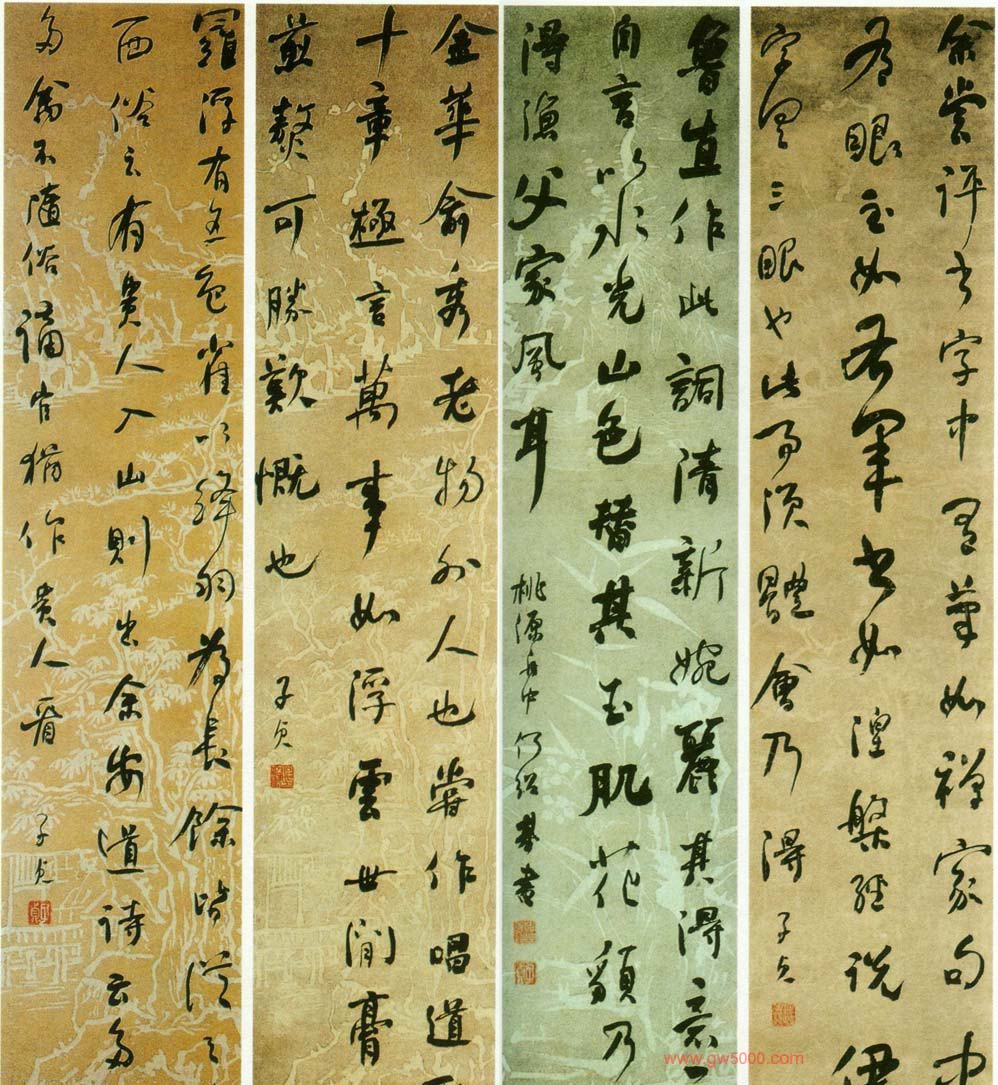 余嘗評書字中有筆如禪家句中
有眼至如右軍書如涅槃經說伊
字具三眼也此事須體會乃得 子貞
魯直作此詞清新婉麗其得意
自言以水光山色替其玉肌花貌乃
得漁父家風耳 桃源舟中 何紹基書
金華俞秀老物外人也嘗作唱道
十章極言萬事如浮雲世間膏
煎熬可勝歎慨也 子貞
羅浮有五色雀以絳羽為長餘皆從之
西俗云有貴人入山則出余安道詩云多
珍禽不隨俗謫官猶作貴人看 子貞
www.gw5000.com